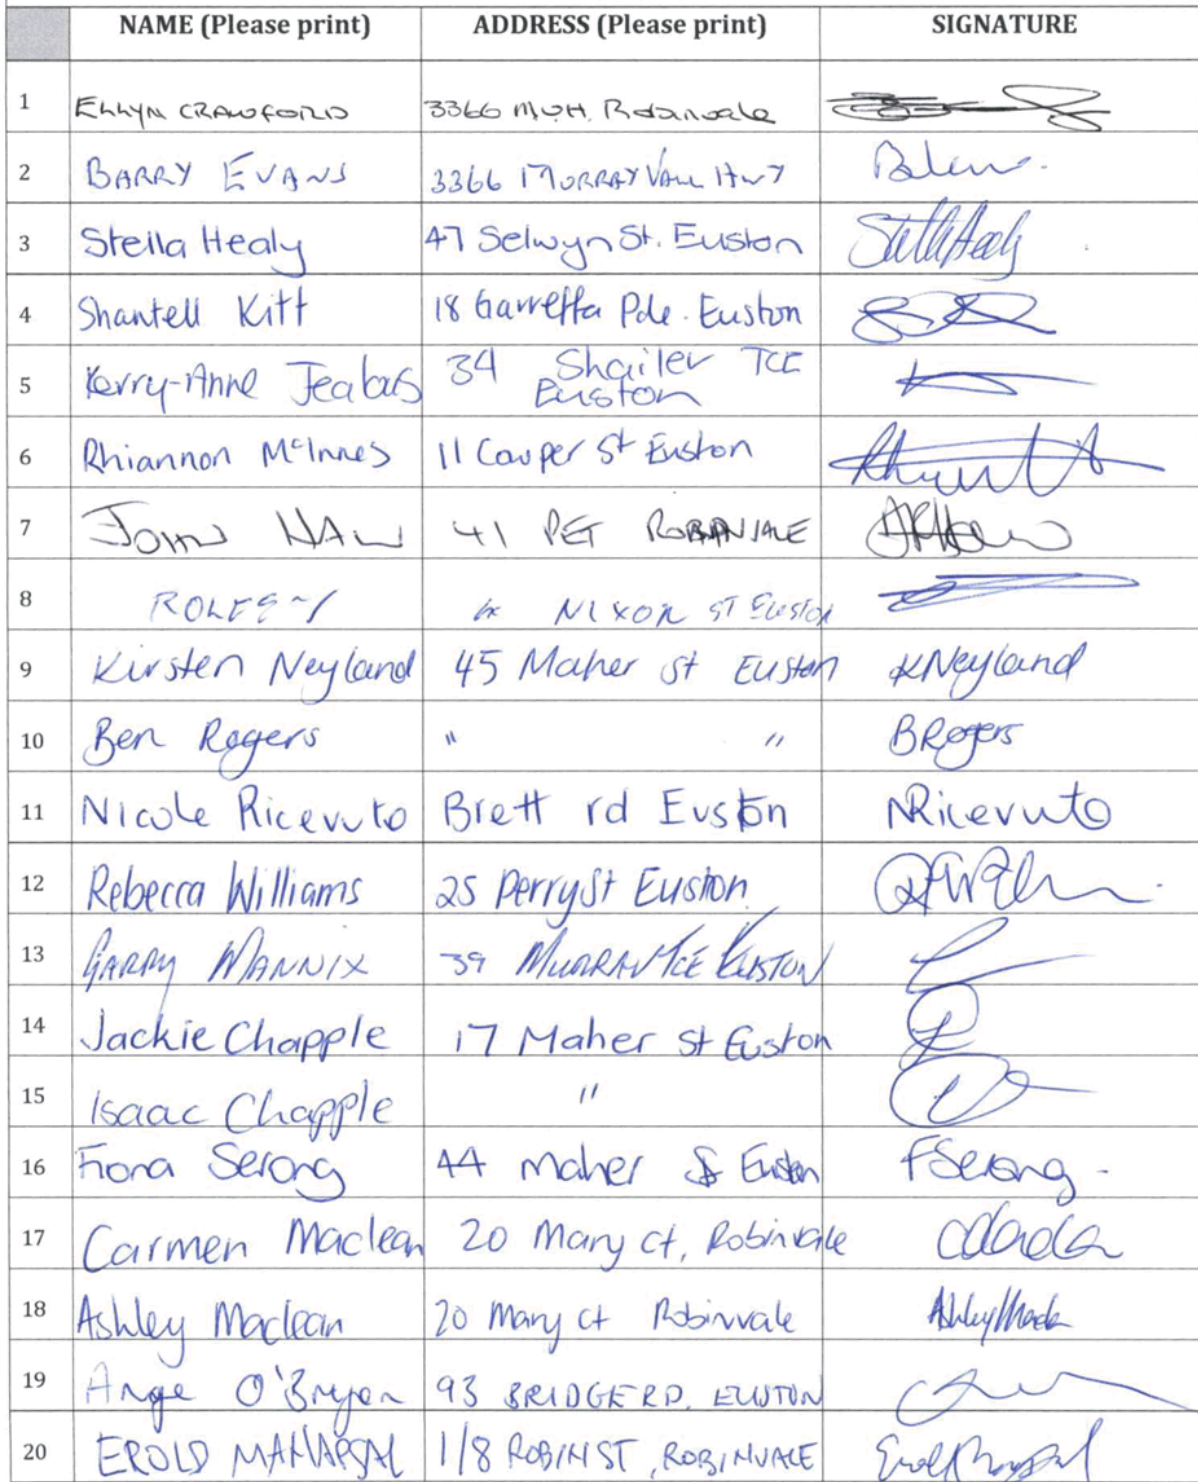 NAME (Please print) ADDRESS (Please print) SIGNATURE
1 ELLYN CRAWFORD 3366 M.V.H. Robinvale
2 BARRY EVANS 3366 MURRAY VALL HWY
3 Stella Healy 47 Selwyn St. Euston
4 Shantell Kitt 18 Garreffa Pde. Euston
5 Kerry-Anne Jealous 34 Shailer TCE
Euston
6 Rhiannon McInnes 11 Cowper St Euston
7 JOHN 41 PET ROBINVALE
8 NIXON ST Euston
9 Kirsten Neyland 45 Maher St Euston KNeyland
10 Ben Rogers " " BRogers
11 Nicole Ricevuto Brett rd Euston NRicevuto
12 Rebecca Williams 25 Perry St Euston
13 GARRY MANNIX 39 MURRAY TCE EUSTON
14 Jackie Chapple 17 Maher St Euston
15 Isaac Chapple "
16 Fiona Serong 44 Maher St Euston FSerong
17 Carmen Maclean 20 Mary ct, Robinvale
18 Ashley Maclean 20 Mary ct Robinvale
19 Ange O'Bryan 93 BRIDGE RD. EUSTON
20 EROLD 1/8 ROBIN ST, ROBINVALE